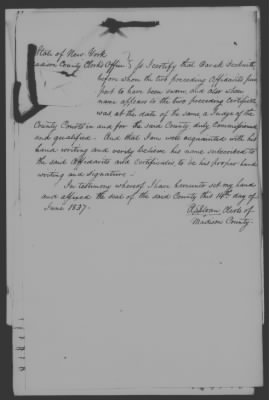 State of New York
adison County Clerks Office } ss I certify that Barak
before whom the two preceding Affidavits pur
port to have been sworn and also whose
name appears to the two preceding certificates
was at the date of the same a Judge of the
County Courts in and for the said County duly Commissioned
and qualified. And that I am well acquainted with his
hand writing and verily believe his name subscribed to
the said Affidavits and certificates to be his proper hand
writing and signature.—
In testimony whereof I have hereunto set my hand
and affixed the seal of the said County this 14th day of
June 1837.
Clerk of
Madison County.